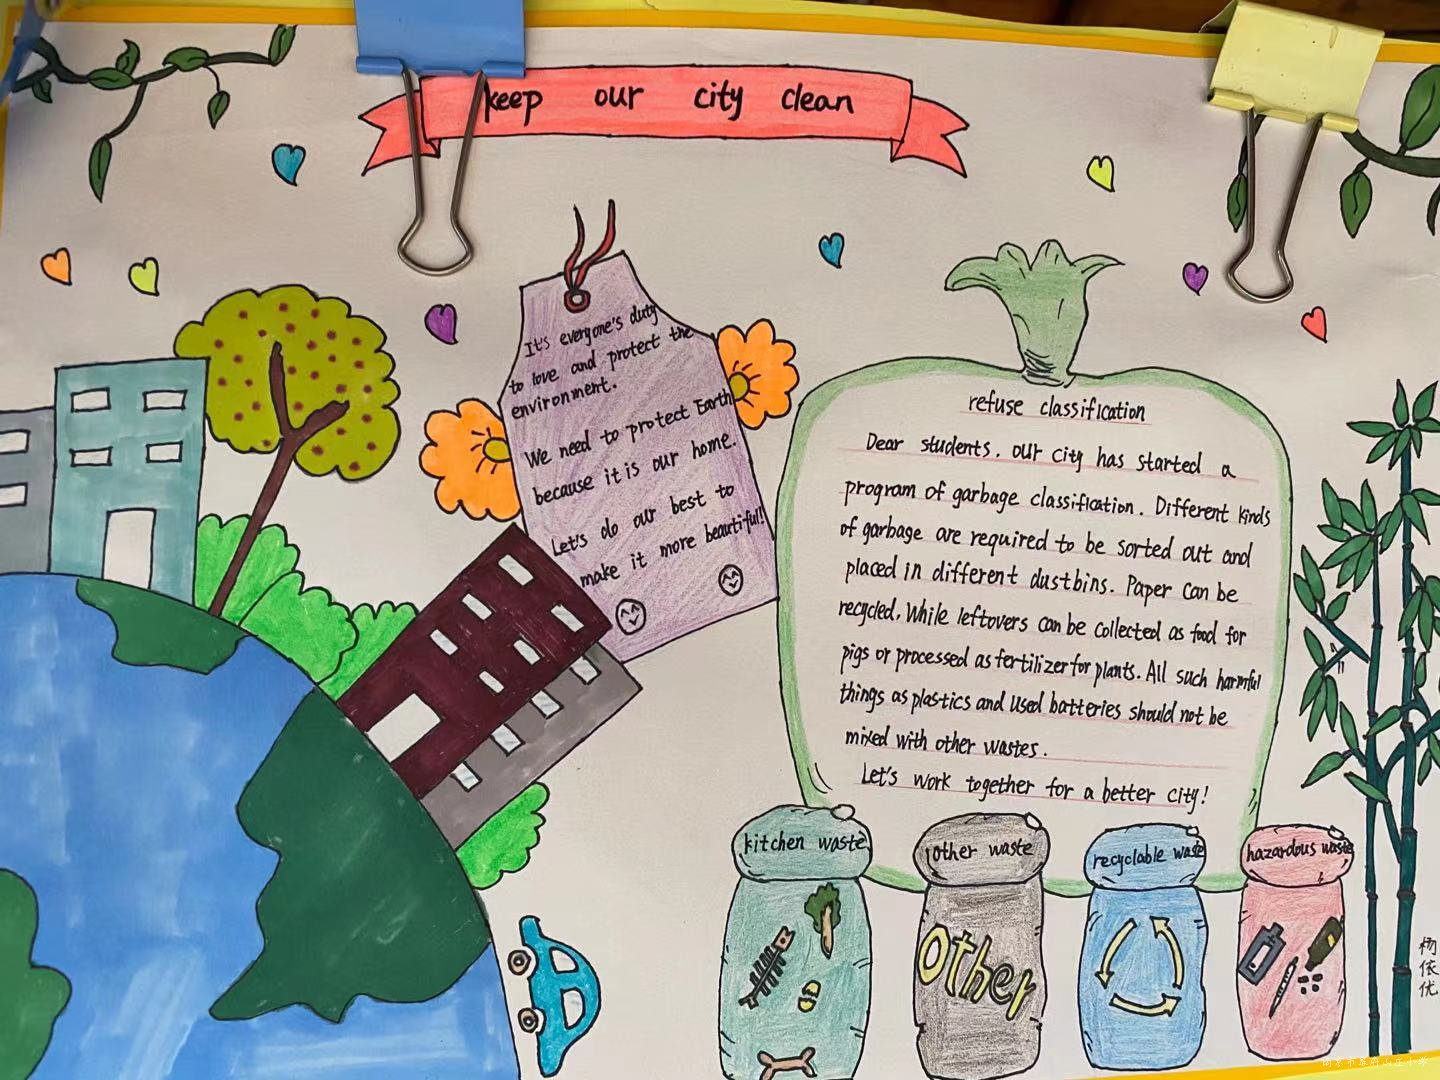 keep our city clean
It's everyone's duty
to love and protect the
environment.
We need to protect Earth
because it is our home.
Let's do our best to
make it more beautiful!
refuse classification
Dear students, our city has started a
program of garbage classification. Different kinds
of garbage are required to be sorted out and
placed in different dustbins. Paper can be
recycled, While leftovers can be collected as food for
pigs or processed as fertilizer for plants. All such harmful
things as plastics and used batteries should not be
mixed with other wastes.
Let's work together for a better city!
kitchen waste
other waste
recyclable waste
hazardous waste
other
杨依优